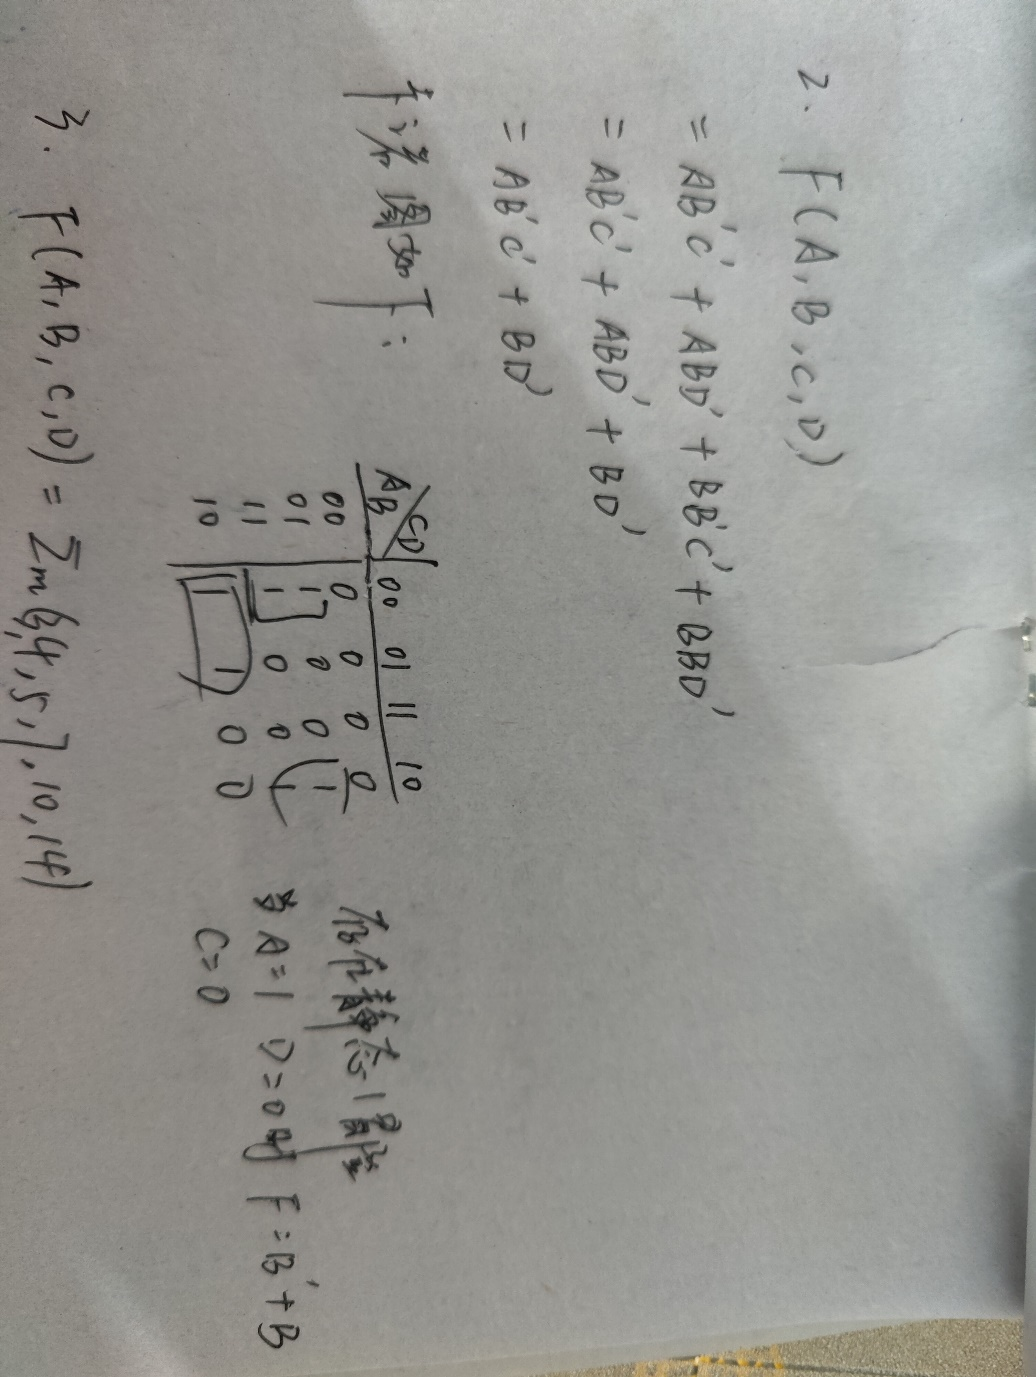 2. F(A,B,C,D)
= AB'C' + ABD' + BB'C' + BBD'
= AB'C' + ABD' + BD'
= AB'C' + BD'
卡诺图如下:
AB\CD 00 01 11 10
00 0 0 0 0
01 1 0 0 1
11 1 0 0 1
10 1 1 0 0
存在静态1冒险
当 A=1 D=0时 F=B'+B
C=0
3. F(A,B,C,D) = Σm(3,4,5,7,10,14)